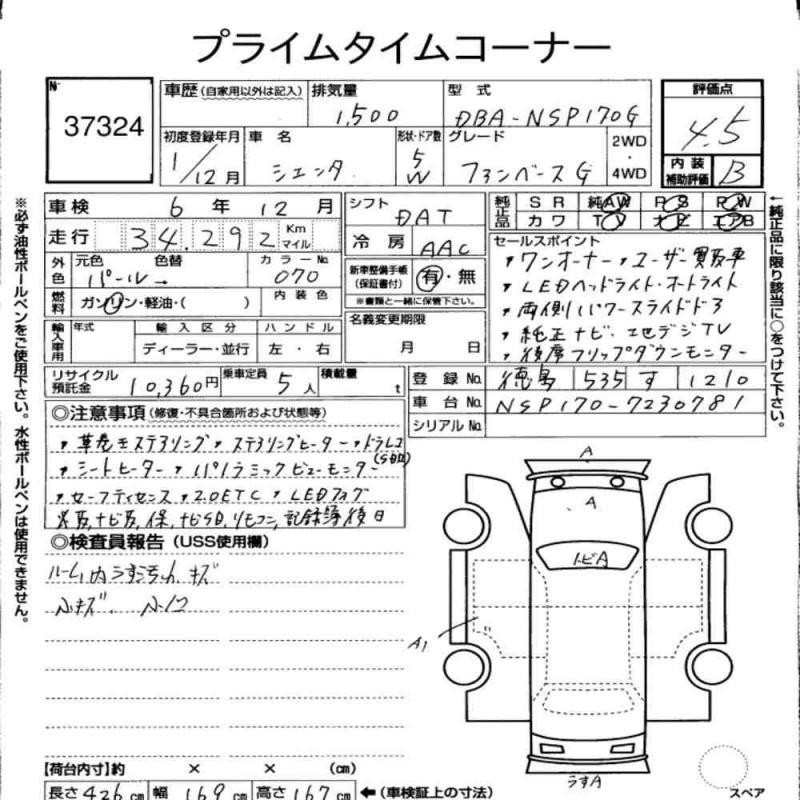 プライムタイムコーナー
№ 37324
車歴 (自家用以外は記入) 排気量 1,500 型式 DBA-NSP170G
初度登録年月 1/12月 車名 シエンタ 形状・ドア数 5 W グレード ファンベースG 2WD・4WD
評価点 4.5
内装補助評価 B
車検 6年 12月 シフト DAT
走行 34,292 Km マイル 冷房 AAC
外色 元色 パール→ 色替 カラーNo 070
燃料 ガソリン・軽油・( ) 内装色
新車整備手帳 (保証書付) 有・無
※書類と一緒に保管下さい。
輸入車用 年式 輸入区分 ディーラー・並行 ハンドル 左・右
名義変更期限 月 日
純正品 SR 純AW PS PW
カワ TV ナビ エアB
セールスポイント
・ワンオーナー ・ユーザー買取車
・LEDヘッドライト・オートライト
・両側パワースライドドア
・純正ナビ・フルセグデジTV
・後席フリップダウンモニター
←純正品に限り該当に○をつけて下さい。
※必ず油性ボールペンをご使用下さい。水性ボールペンは使用できません。
リサイクル預託金 10,360円 乗車定員 5人 積載量 t
登録No. 徳島 535 す 1210
車台No. NSP170-7230781
シリアルNo.
◎注意事項 (修復・不具合箇所および状態等)
・革巻きステアリング ・ステアリングヒーター ・ドラレコ
・シートヒーター ・パノラミックビューモニター
・セーフティセンス ・2.0ETC ・LEDフォグ
ナビSD、リモコン、記録簿後日
◎検査員報告 (USS使用欄)
ルーム内うすごち、キズ
A
A
トビA
A1
うすA
【荷台内寸】約 × × (cm)
長さ 426 cm 幅 169 cm 高さ 167 cm ←(車検証上の寸法)
スペア